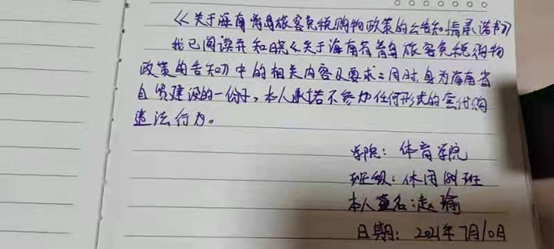 《关于海南离岛旅客免税购物政策的告知情承诺书》
我已阅读并知晓《关于海南省离岛旅客免税购物
政策的告知》中的相关内容及要求；同时身为海南省
自贸建设的一份子，本人承诺不参加任何形式的套代购
违法行为。
学院：体育学院
班级：休闲 班
本人签名：赵瑜
日期：2021年7月10日